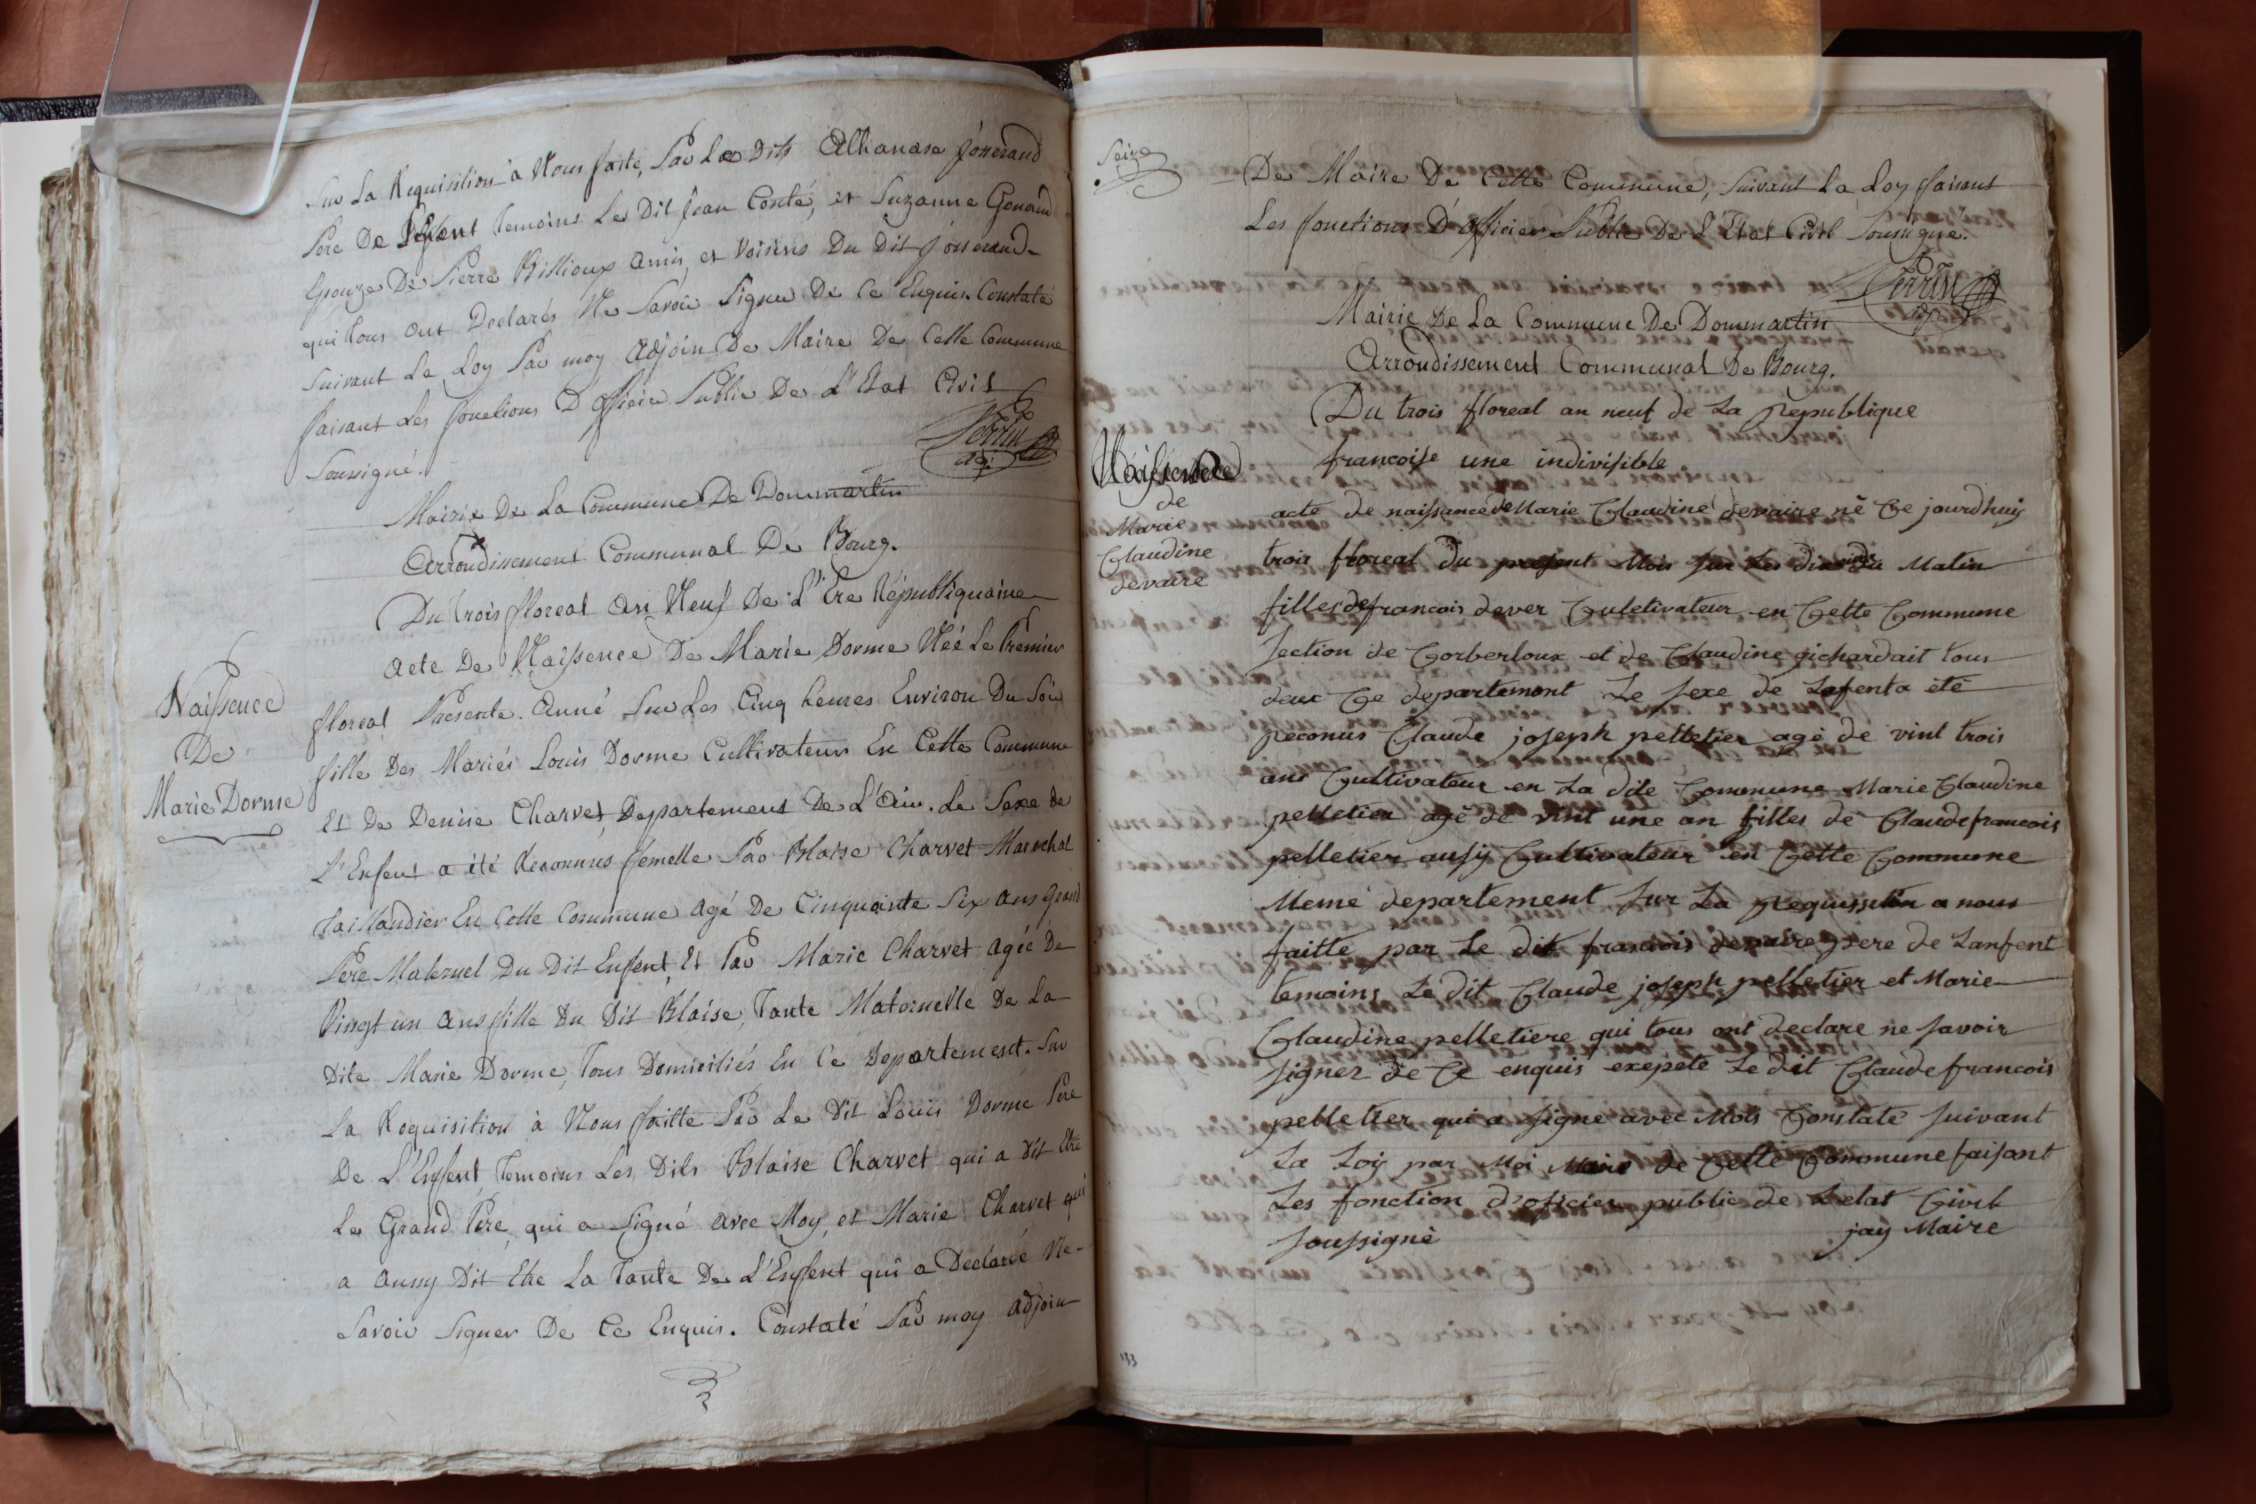 Sur La Requisition à Nous faite, Par Le Dit Athanase Josserand
Pere De L'Enfent Temoins Le Dit Jean Conté, et Suzanne Gouand
Epouze De Pierre Billioux amis, et Voisins Du Dit Josserand
qui tous ont Declarés Ne Savoir Signer De Ce Enquis. Constaté
Suivant La Loy Par moy Adjoin De Maire De Cette Commune
faisant Les fonctions D'officier Public De L'Etat Civil
Soussigné.
Perrin
adj:
Mairie De La Commune De Dommartin
Arrondissement Communal De Bourg.
Du trois floreal an Neuf De L'Ere Républiquaine
Naissence
De
Marie Dorme
Acte De Naissence De Marie Dorme Née Le Premier
floreal Presente. Anné Sur Les Cinq heures Environ Du Soir
fille Des Mariés Louis Dorme Cultivateur En Cette Commune
Et De Denise Charvet, Departement De L'Ain. Le Sexe de
L'Enfent a été Reconnus femelle Par Blaise Charvet Marechal
Taillandier En Cette Commune agé De Cinquante Six ans Grand
Pere Maternel Du Dit Enfent, Et Par Marie Charvet agée De
Vingt un ans fille Du Dit Blaise, Tante Maternelle De La
Dite Marie Dorme, Tous Domiciliés En Ce Departement. Sur
La Requisition à Nous faitte Par Le Dit Louis Dorme Pere
De L'Enfent, Temoins Les Dits Blaise Charvet qui a Dit Etre
Le Grand Pere, qui a Signé avec Moy, et Marie Charvet qui
a aussy Dit Etre La Tante De L'Enfent qui a Declaré Ne
Savoir Signer De Ce Enquis. Constaté Par moy adjoin
Seize
De Maire De Cette Commune, Suivant La Loy faisant
Les fonctions D'officier Public De L'Etat Civil Soussigné.
Perrin
adj
Mairie De La Commune De Dommartin
Arrondissement Communal De Bourg.
Du trois floreal an neuf de La Republique
francoise une indivisible
Naissence
de
Marie
Claudine
devaire
acte de naissance de Marie Claudine devaire né Ce jourdhuy
trois floreal du present Mois sur Les dix du Matin
filles de francois dever Culetivateur en Cette Commune
section de Corberloux et de Claudine gichardait tous
deux Ce departement Le sexe de Lafenta été
reconus Claude joseph pelletier agé de vint trois
ans Cultivateur en La dite Commune Marie Claudine
pelletier agé de vint une an filles de Claude francois
pelletier ausy Cultivateur en Cette Commune
Meme departement sur La requissition a nous
faitte par Le dit francois devaire pere de Lanfent
temoins Le dit Claude joseph pelletier et Marie
Claudine pelletiere qui tous ont declare ne savoir
signer de Ce enquis exepete Le dit Claude francois
pelletier qui a signe avec Mois Constaté suivant
La Loy par Moi Maire de Cette Commune faisant
Les fonction d'oficier public de Letat Civil
soussigné jay Maire